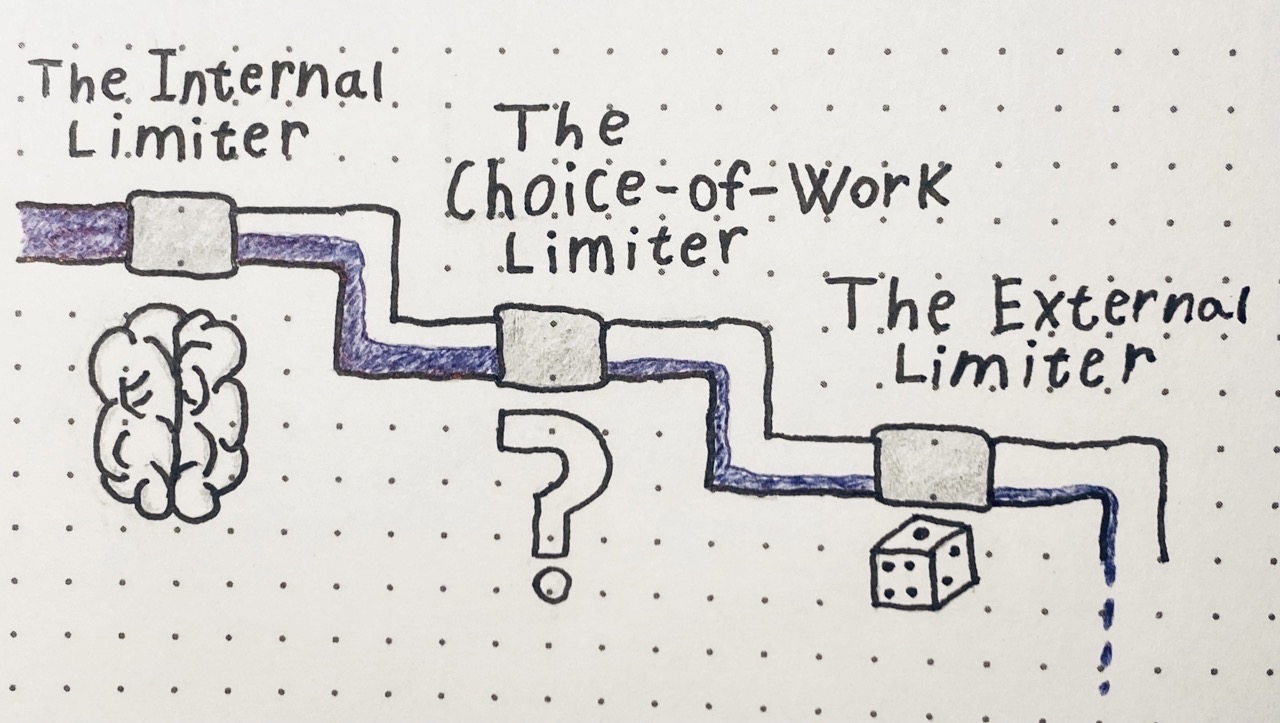 The Internal
Limiter
The
Choice-of-Work
Limiter
The External
Limiter
?